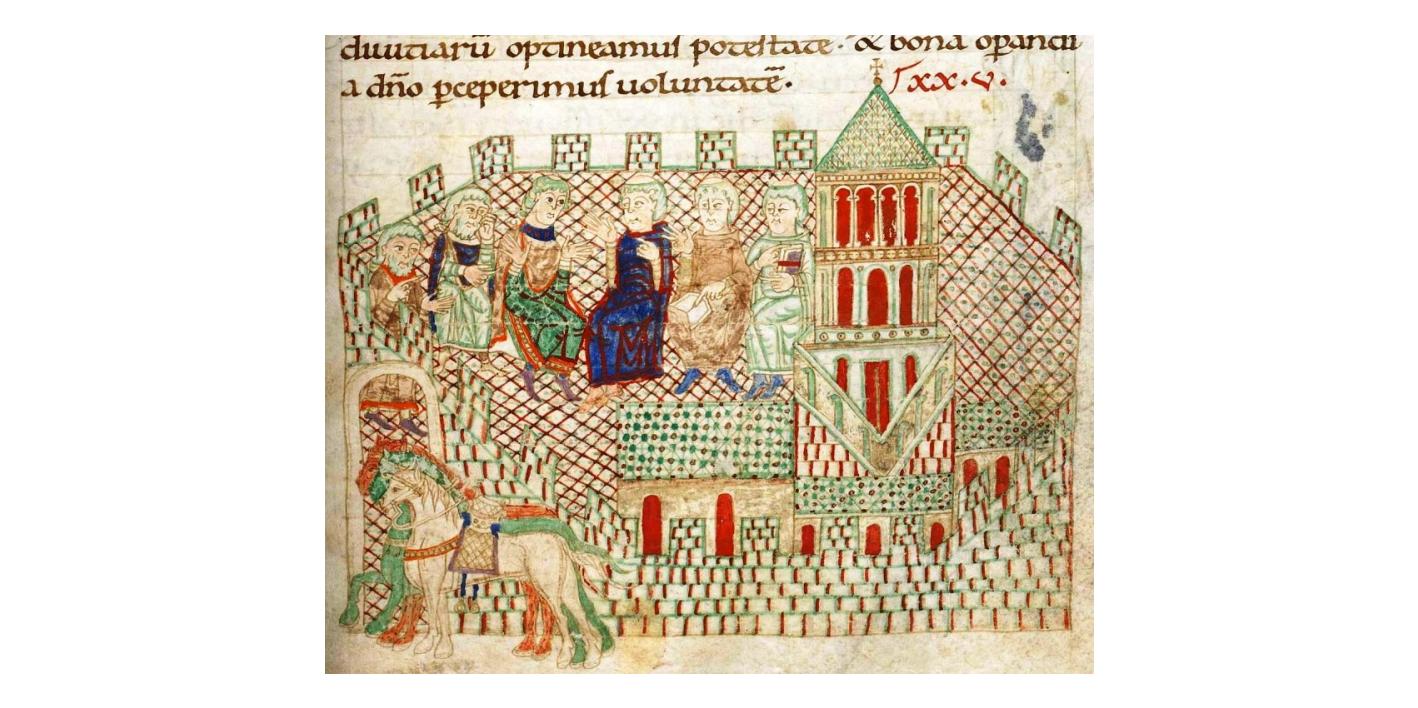 diuitiarū optineamuſ poteſtate· & bona oꝑandi
a dn̄o ꝑceperimuſ uoluntatē· lxx·v·